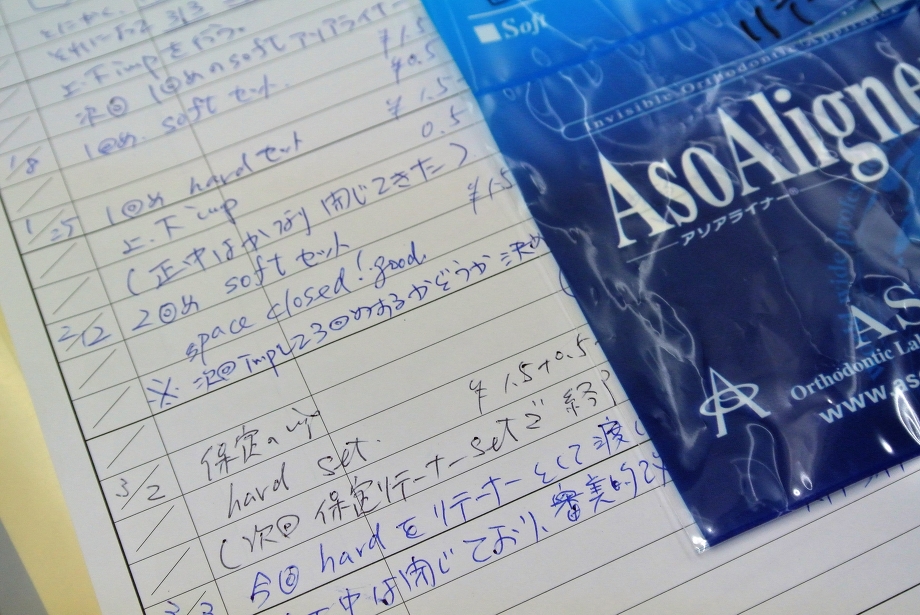 上.下impを行う.
次回 1回めのsoft アソアライナー ¥1.5
1/8 1回め. soft セット. ¥0.5
1回め hard セット ¥1.5
1/25 上.下imp 0.5
(正中はかなり閉じてきた)
2/12 2回め soft セット ¥1.5
space closed! good.
※ 次回impして3回めするかどうか決め
保定のimp
3/2 hard set. ¥1.5+0.5
(次回 保定リテーナーsetで終)
今回 hardをリテーナーとして渡し
正中は閉じており、審美的で
Soft
リテ
Invisible Orthodontic
AsoAligne
アソアライナー®
AS
Orthodontic Lab
www.aso